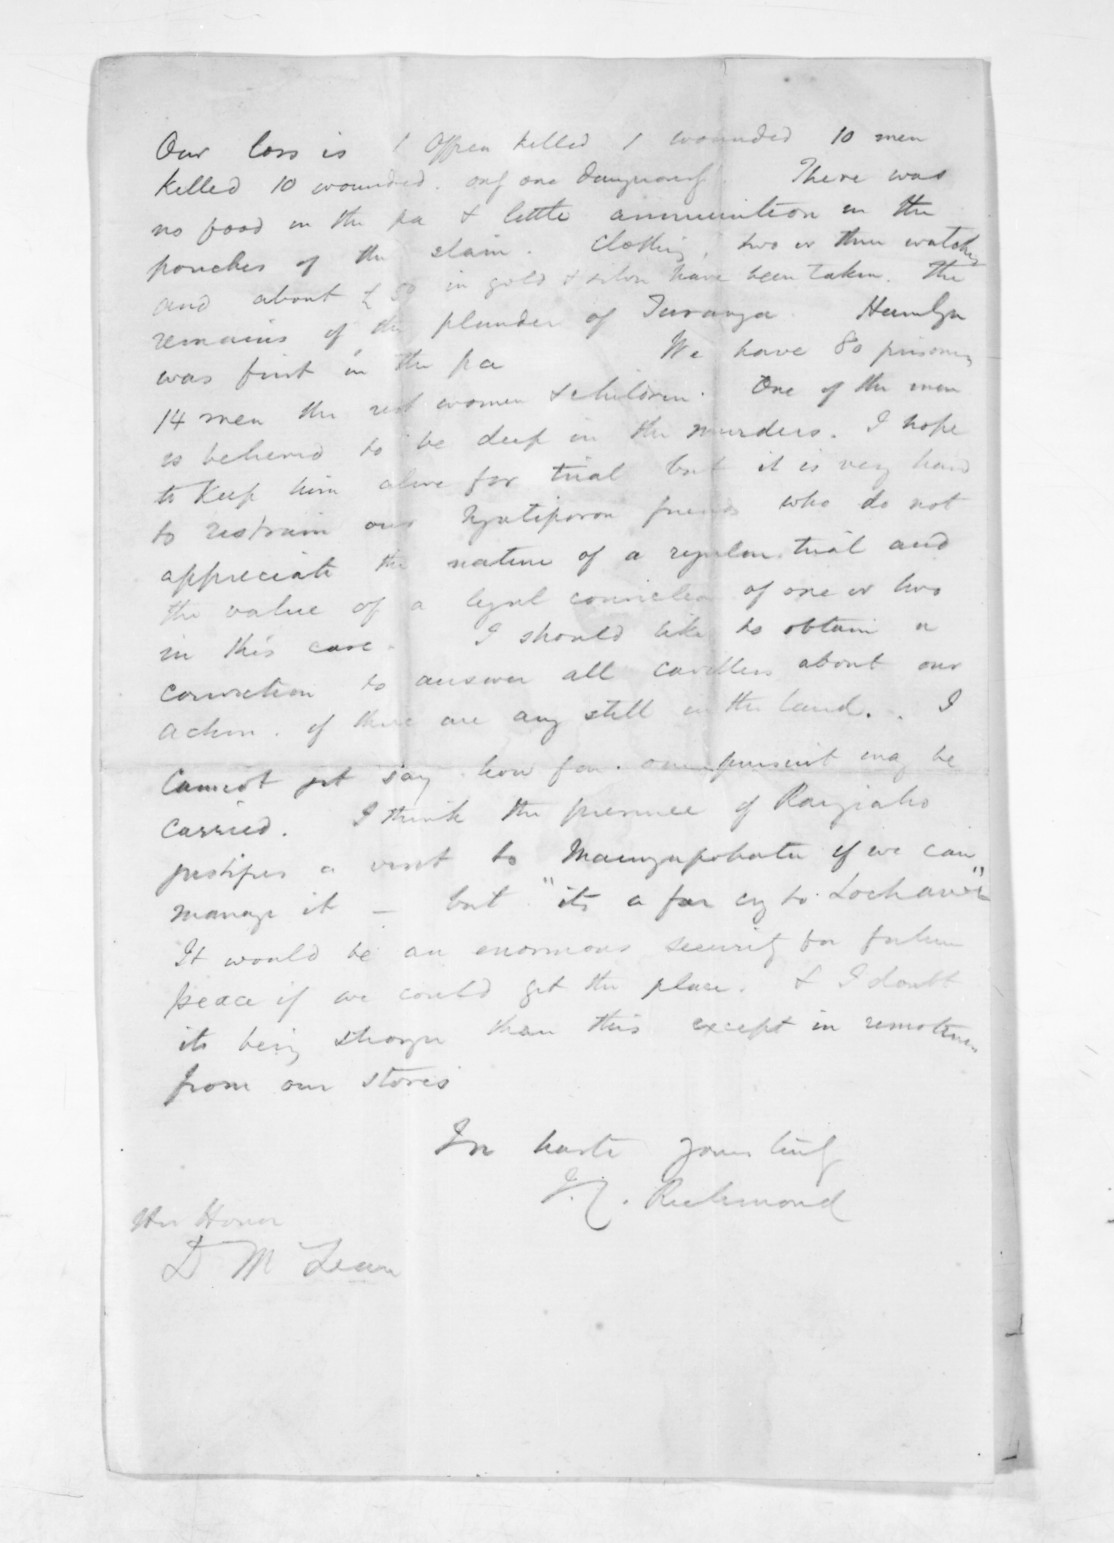 Our loss is 1 Officer killed 1 wounded 10 men
killed 10 wounded. only one dangerously. There was
no food in the pa & little ammunition in the
pouches of the slain. Clothing, two or three watches
and about £50 in gold & silver have been taken. The
remains of the plunder of Turanga. Hamlyn
was first in the pa We have 80 prisoners
14 men the rest women & children. One of the men
is believed to be deep in the murders. I hope
to keep him alive for trial but it is very hard
to restrain our Ngatiporou friends who do not
appreciate the nature of a regular trial and
the value of a legal conviction of one or two
in this case. I should like to obtain a
conviction to answer all cavillers about our
action. if there are any still in the land. . I
cannot yet say how far our pursuit may be
carried. I think the presence of
justifies a visit to Maungapohatu if we can
manage it – but "its a far cry to Lochawe"
It would be an enormous security for future
peace if we could get the place. & I doubt
its being stronger than this except in remoteness
from our stores
In haste yours truly
J.C. Richmond
His Honor
D McLean